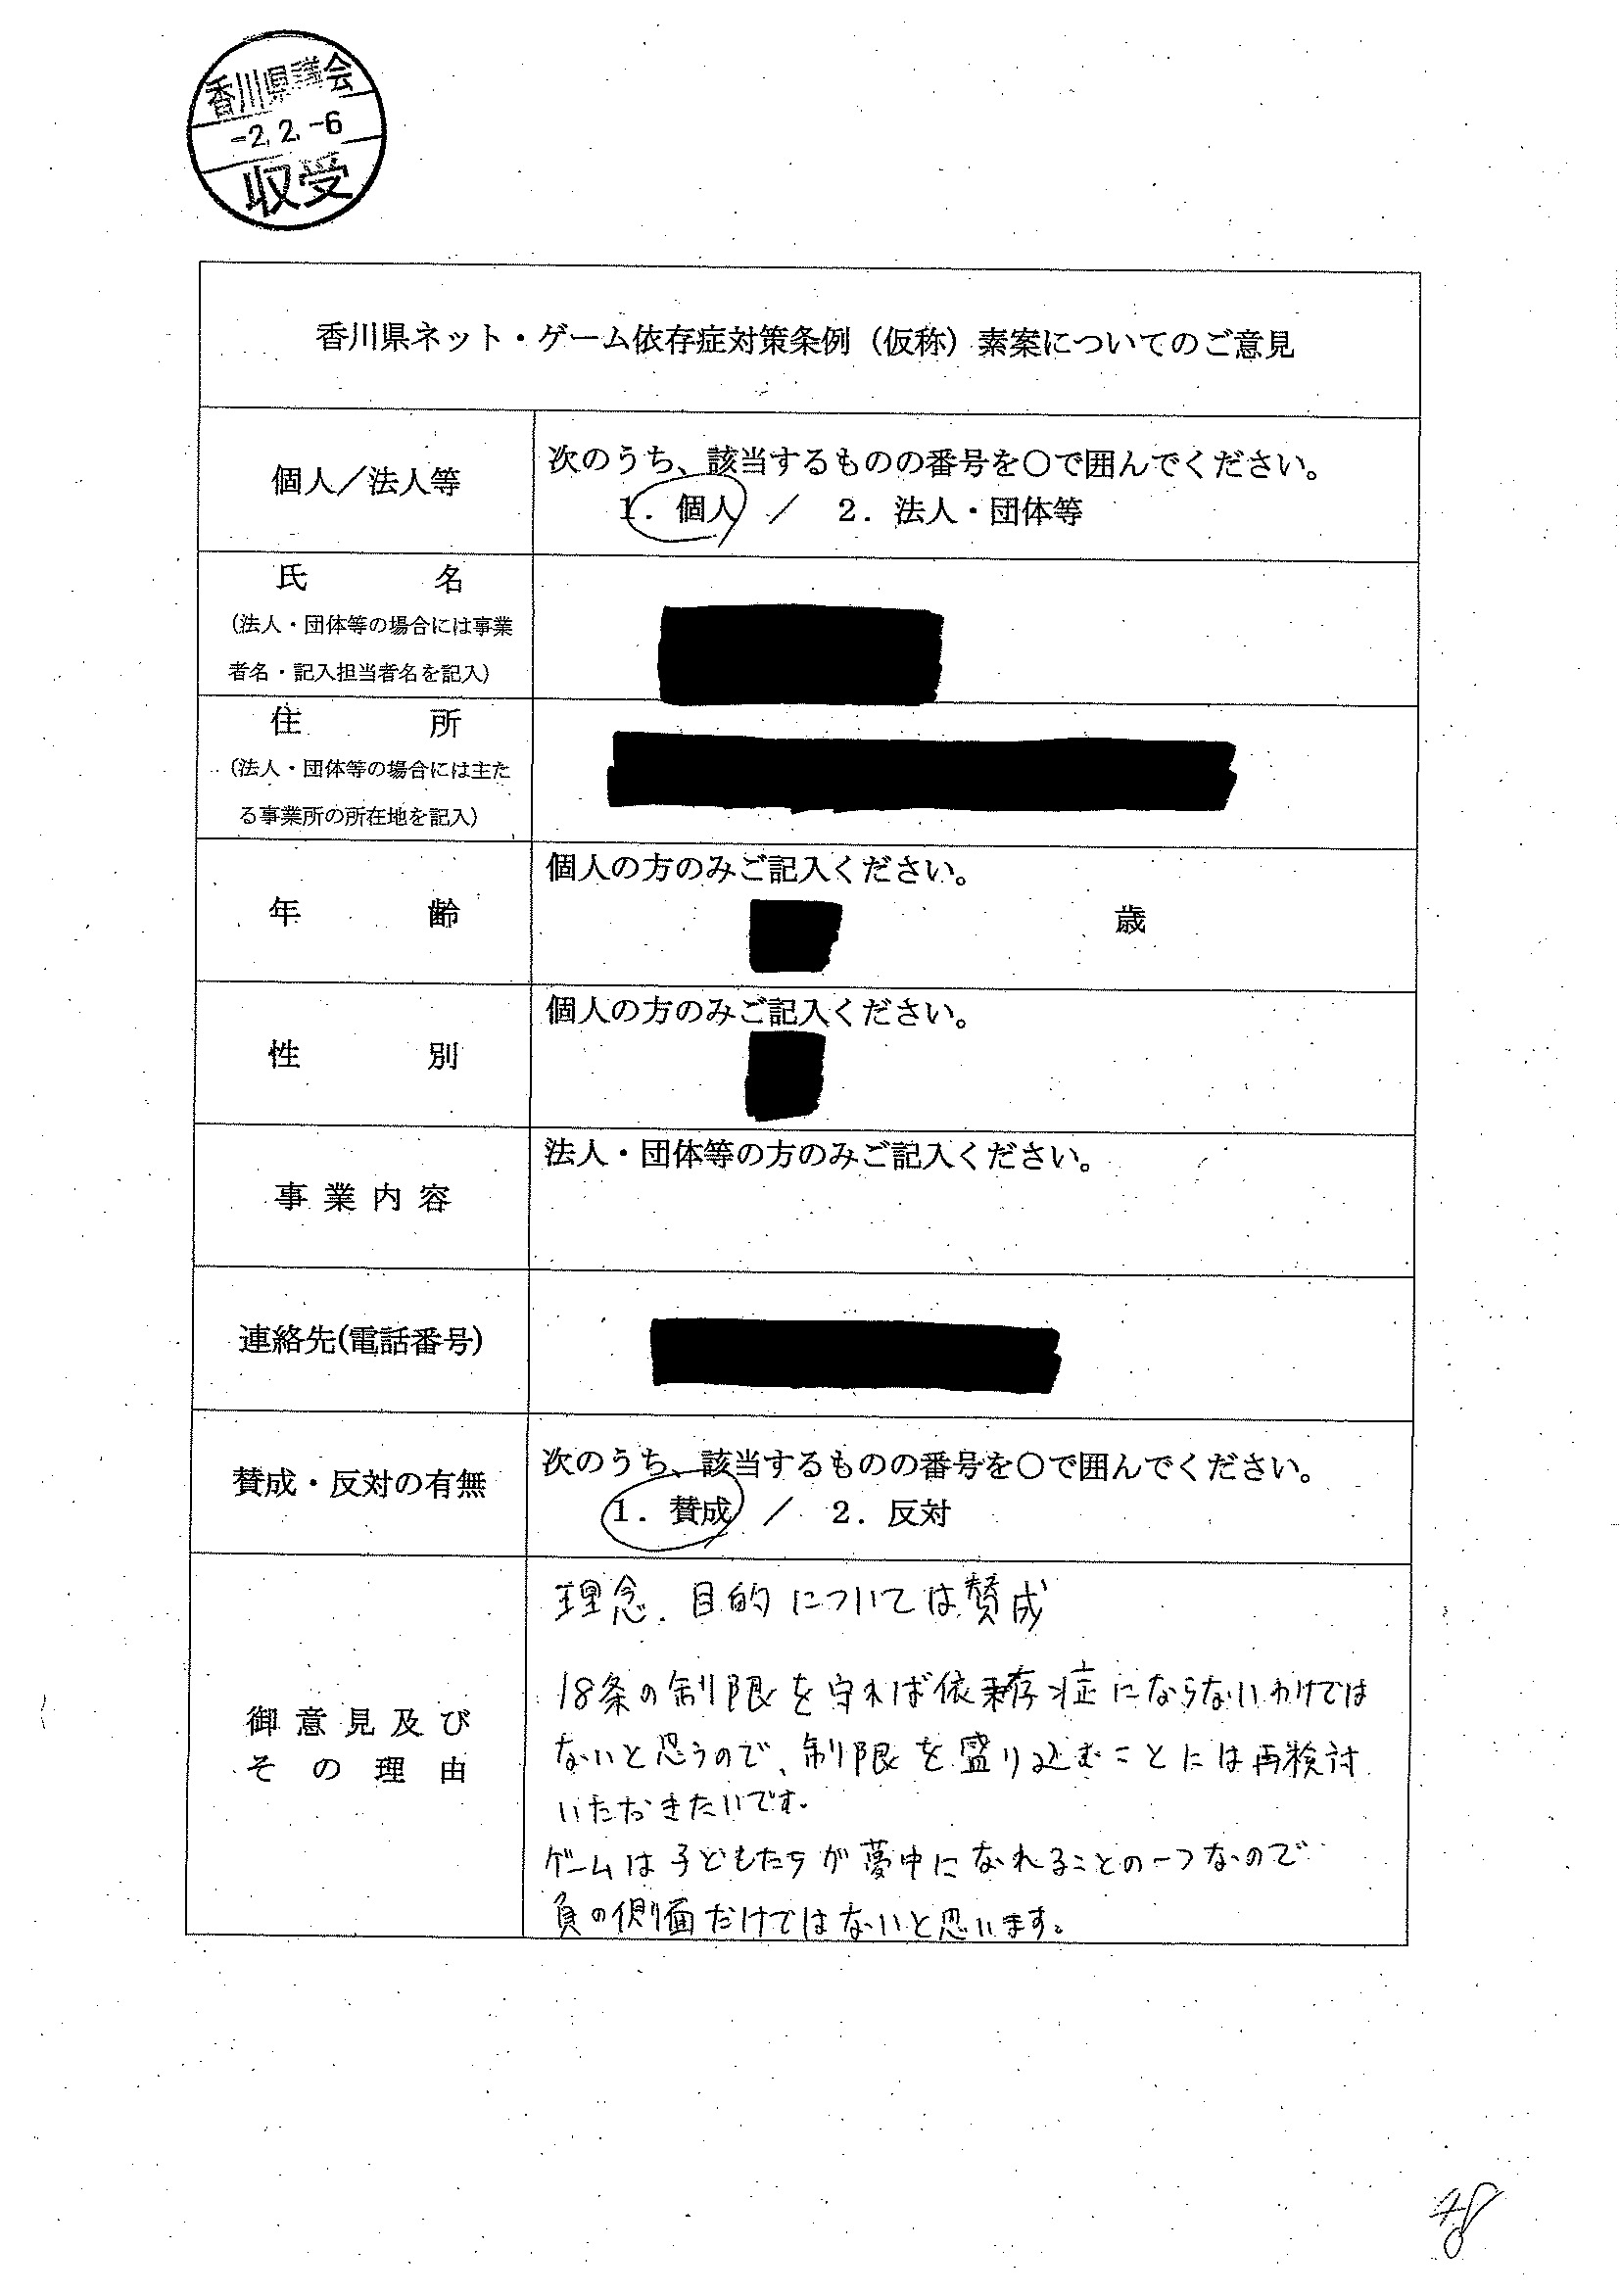 香川県議会
-2.2.-6
収受
香川県ネット・ゲーム依存症対策条例（仮称）素案についてのご意見
個人／法人等
次のうち、該当するものの番号を〇で囲んでください。
1．個人　／　2．法人・団体等
氏　名
（法人・団体等の場合には事業
者名・記入担当者名を記入）
住　所
（法人・団体等の場合には主た
る事業所の所在地を記入）
年　齢
個人の方のみご記入ください。
歳
性　別
個人の方のみご記入ください。
事業内容
法人・団体等の方のみご記入ください。
連絡先(電話番号)
賛成・反対の有無
次のうち、該当するものの番号を〇で囲んでください。
1．賛成　／　2．反対
御意見及び
その理由
理念、目的については賛成
18条の制限を守れば依存症にならないわけでは
ないと思うので、制限を盛り込むことには再検討
いただきたいです。
ゲームは子どもたちが夢中になれることの一つなので
負の側面だけではないと思います。
48